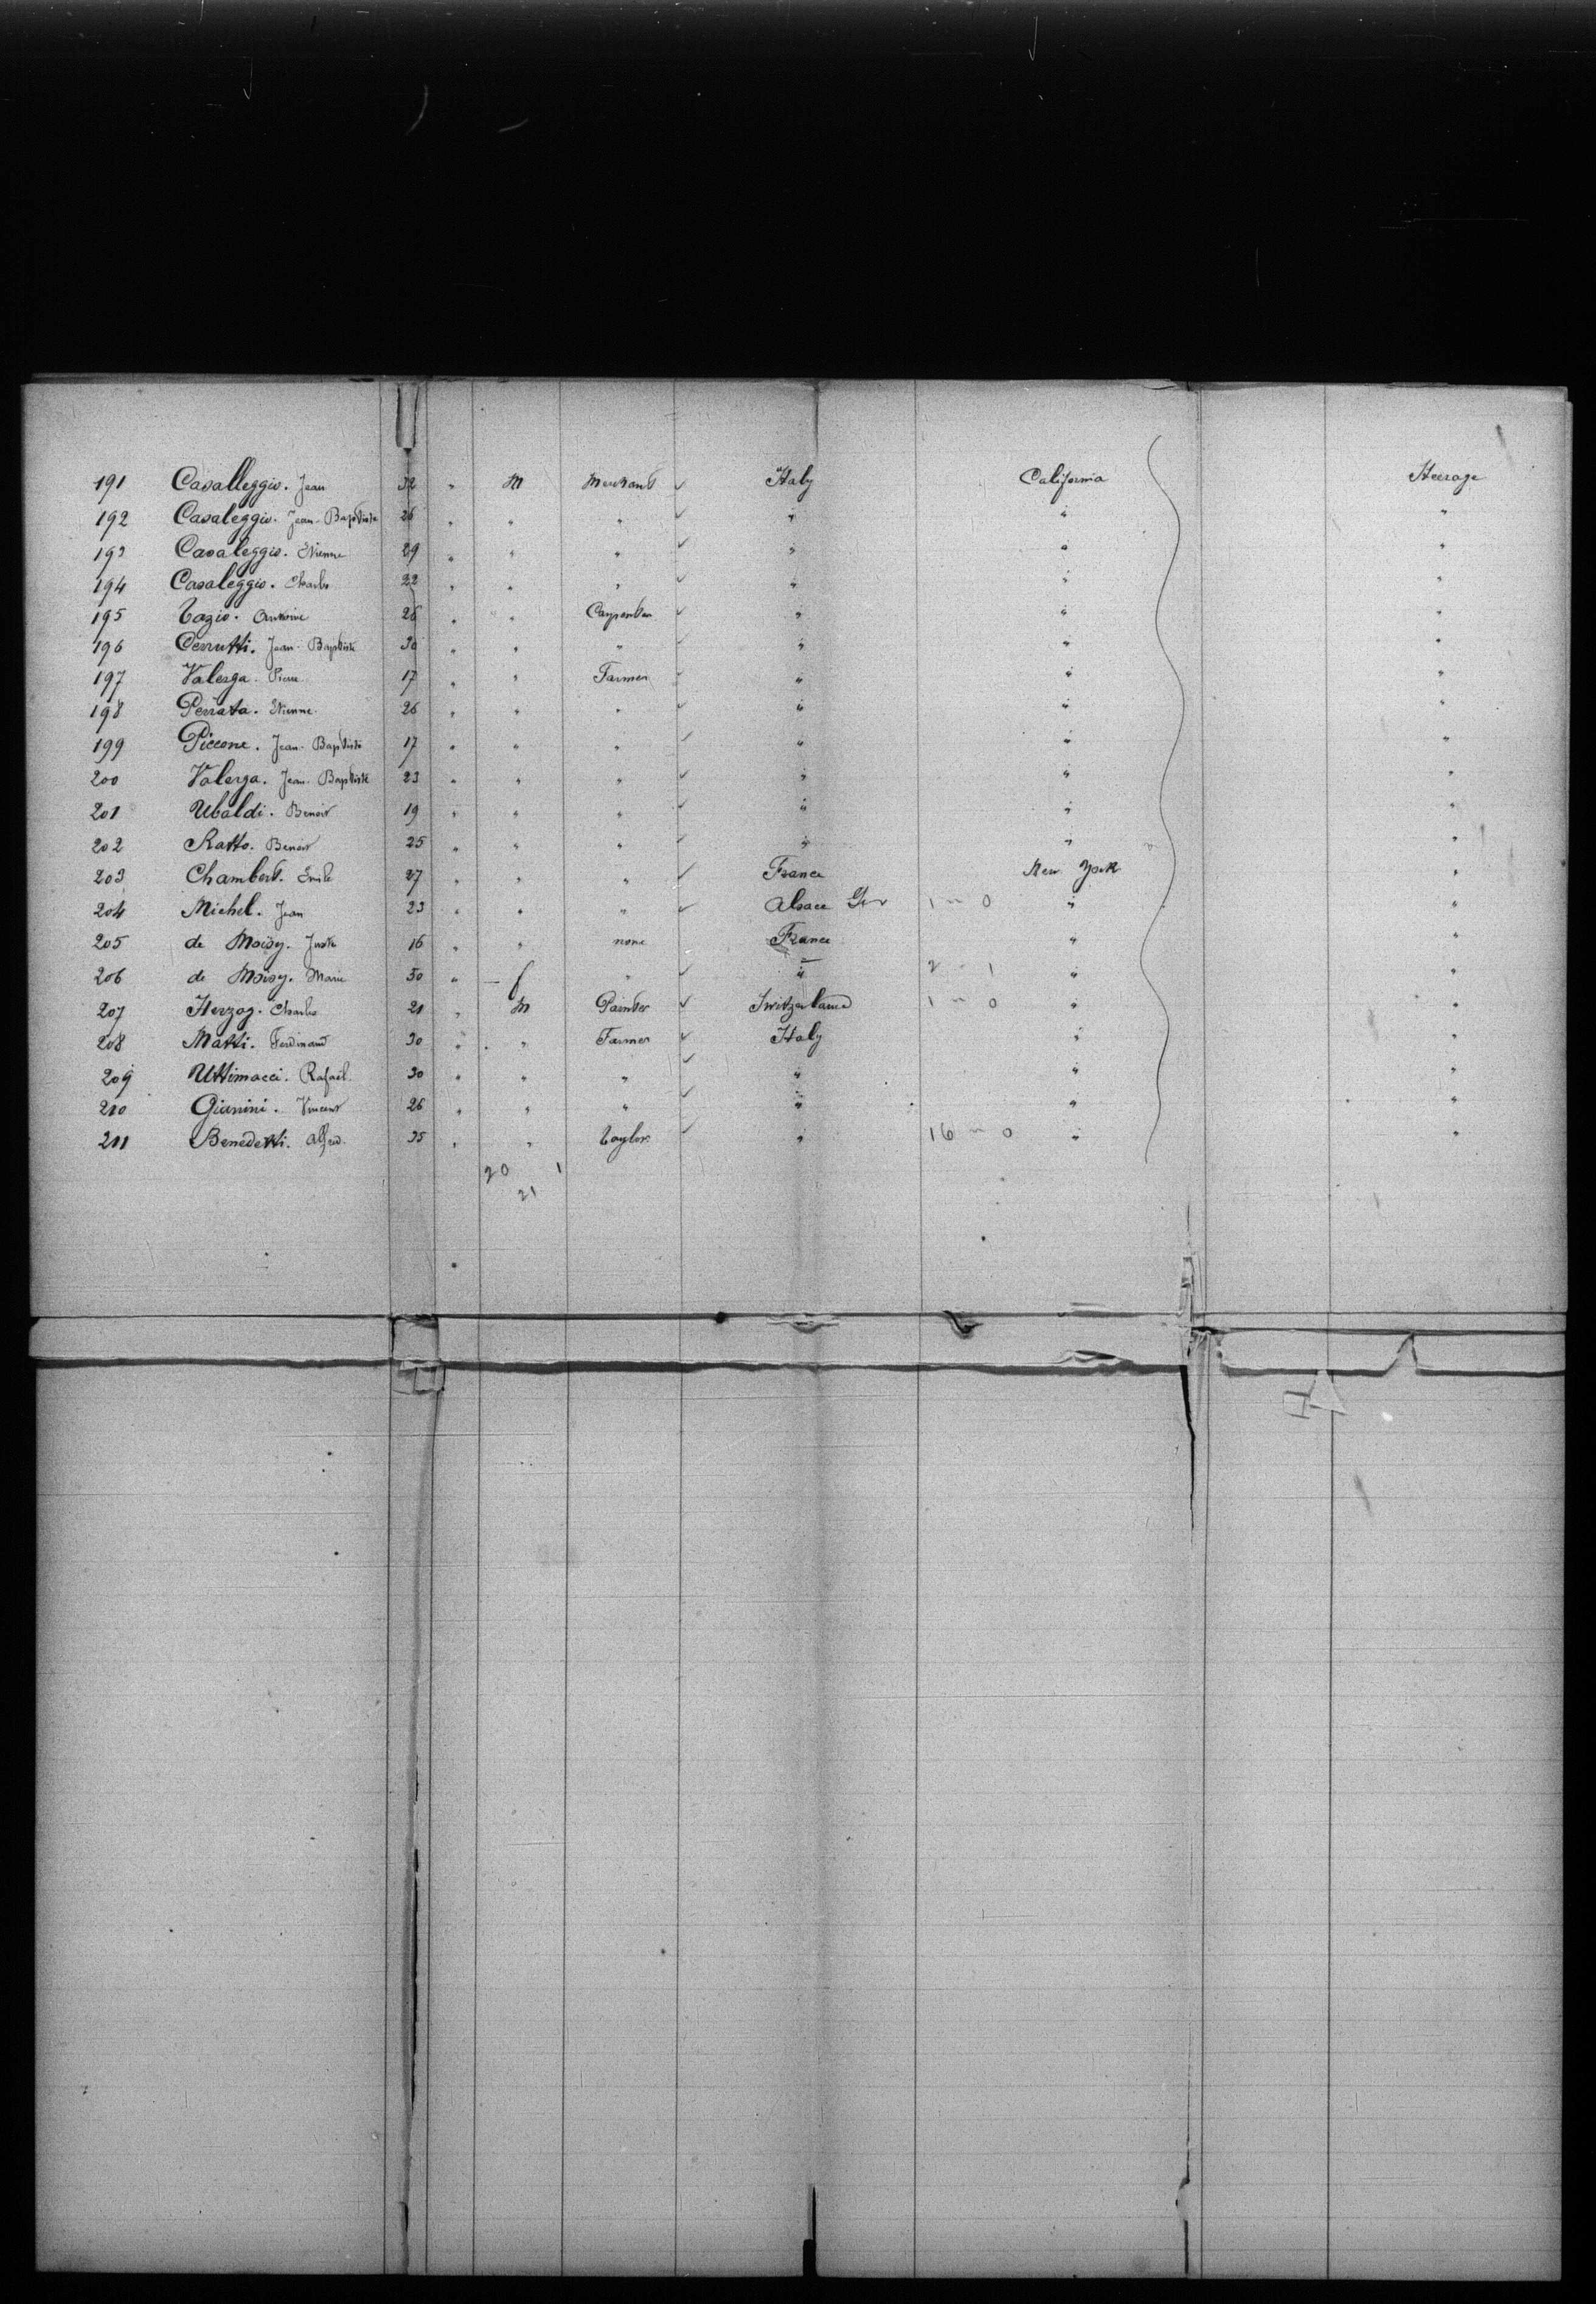 191 Casalleggio. Jean 32 " M Merchant ✓ Italy California Steerage
192 Casaleggio. Jean-Baptiste 26 " " " ✓ " " "
193 Casaleggio. Etienne 29 " " " ✓ " " "
194 Casaleggio. Charles 22 " " " ✓ " " "
195 Tozio. Antoine 26 " " Carpenter ✓ " " "
196 Cerrutti. Jean-Baptiste 30 " " " ✓ " " "
197 Valerga. Pierre 17 " " Farmer ✓ " " "
198 Perrata. Etienne 26 " " " ✓ " " "
199 Piccone. Jean-Baptiste 17 " " " ✓ " " "
200 Valerga. Jean-Baptiste 23 " " " ✓ " " "
201 Ubaldi. Benoit 19 " " " ✓ " " "
202 Ratto. Benoit 25 " " " ✓ " " "
203 Chambert. Emile 27 " " " ✓ France New York "
204 Michel. Jean 23 " " " ✓ Alsace Ger 1 - 0 " "
205 de Moisy. Juste 16 " " none France " "
206 de Moisy. Marie 50 " f " ✓ " 2 - 1 " "
207 Herzog. Charles 21 " M Painter ✓ Switzerland 1 - 0 " "
208 Matti. Ferdinand 30 " " Farmer ✓ Italy " "
209 Uttimacci. Rafael 30 " " " ✓ " " "
210 Gianini. Vincent 26 " " " ✓ " " "
211 Benedetti. Alfred. 35 " " Taylor ✓ " 16 - 0 " "
20 1
21